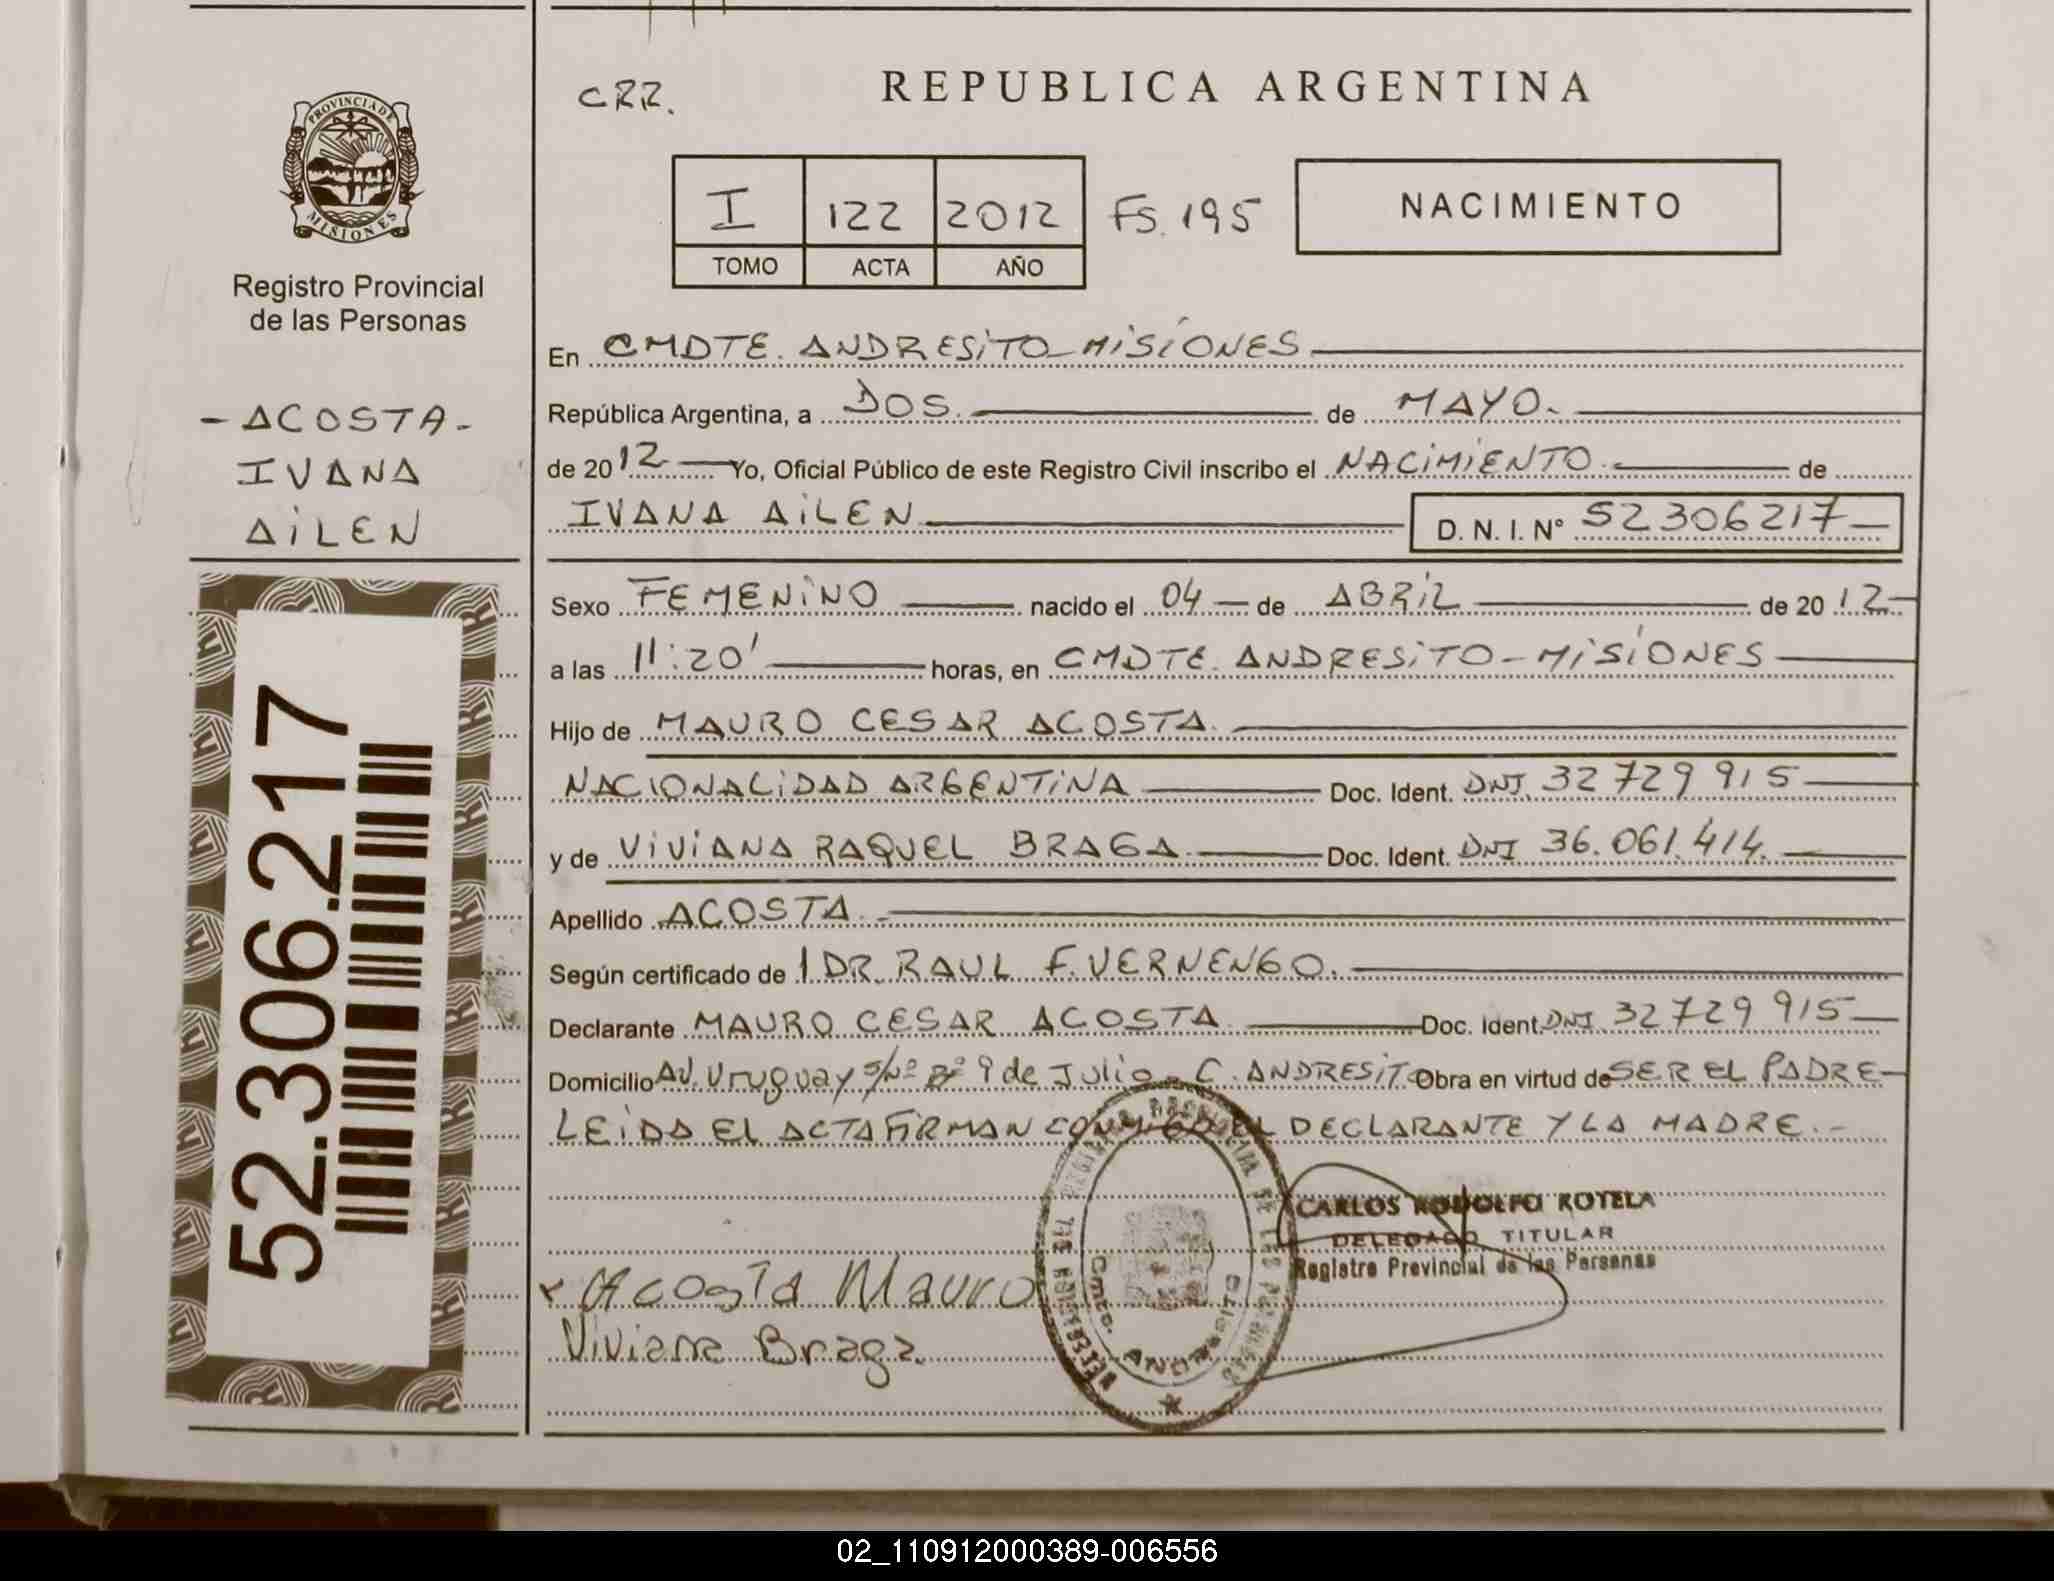 CRR.
REPUBLICA ARGENTINA
PROVINCIA DE
MISIONES
Registro Provincial
de las Personas
I 122 2012 FS. 195
TOMO ACTA AÑO
NACIMIENTO
- ACOSTA -
IVANA
AILEN
52.306.217
En CMDTE. ANDRESITO - MISIONES
República Argentina, a DOS. de MAYO.
de 2012 Yo, Oficial Público de este Registro Civil inscribo el NACIMIENTO. de
IVANA AILEN D. N. I. Nº 52306217
Sexo FEMENINO nacido el 04 de ABRIL de 2012
a las 11:20' horas, en CMDTE. ANDRESITO - MISIONES
Hijo de MAURO CESAR ACOSTA.
NACIONALIDAD ARGENTINA Doc. Ident. DNI. 32729915
y de VIVIANA RAQUEL BRAGA. Doc. Ident. DNI 36.061.414.
Apellido ACOSTA.
Según certificado de DR. RAUL F. VERNENGO.
Declarante MAURO CESAR ACOSTA Doc. Ident. DNI 32729915
Domicilio AV. Uruguay S/Nº Bº 9 de Julio. C. ANDRESITO Obra en virtud de SER EL PADRE
LEIDA EL ACTA FIRMAN CONMIGO EL DECLARANTE Y LA MADRE.-
CARLOS RODOLFO ROTELA
DELEGADO TITULAR
Registro Provincial de las Personas
Acosta Mauro
Viviana Braga
Cmte. ANDRESITO
02_110912000389-006556